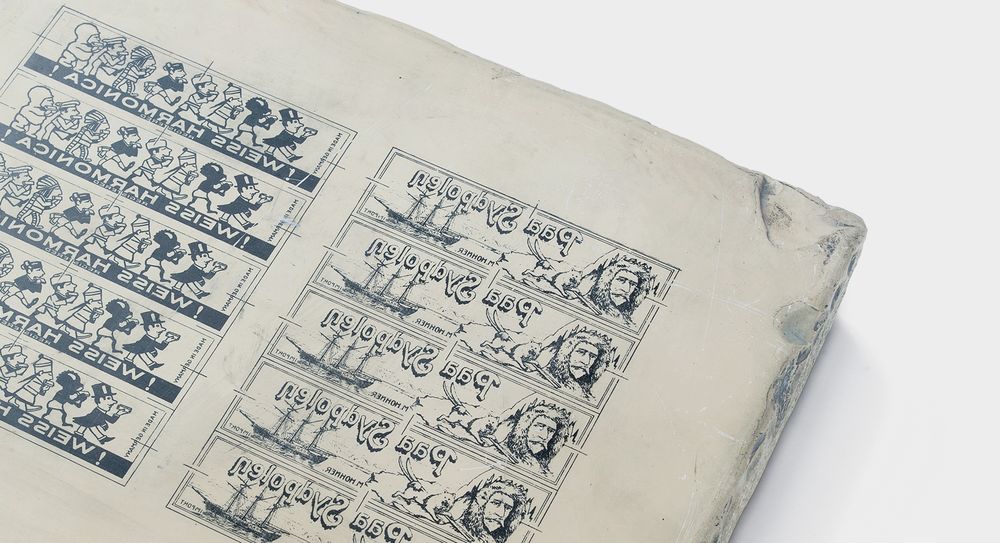 ! WEISS HARMONICA !
MADE IN GERMANY
! WEISS HARMONICA !
MADE IN GERMANY
! WEISS HARMON
MADE IN GERMANY
! WEISS HARM
MADE IN GERMANY
! WEISS H
MADE IN GERMANY
Paa Sydpolen
M. HOHNER
IMPORT
Paa Sydpolen
M. HOHNER
IMPORT
Paa Sydpolen
M. HOHNER
IMPORT
Paa Sydpolen
M. HOHNER
IMPORT
Paa Sydpolen
IMPORT